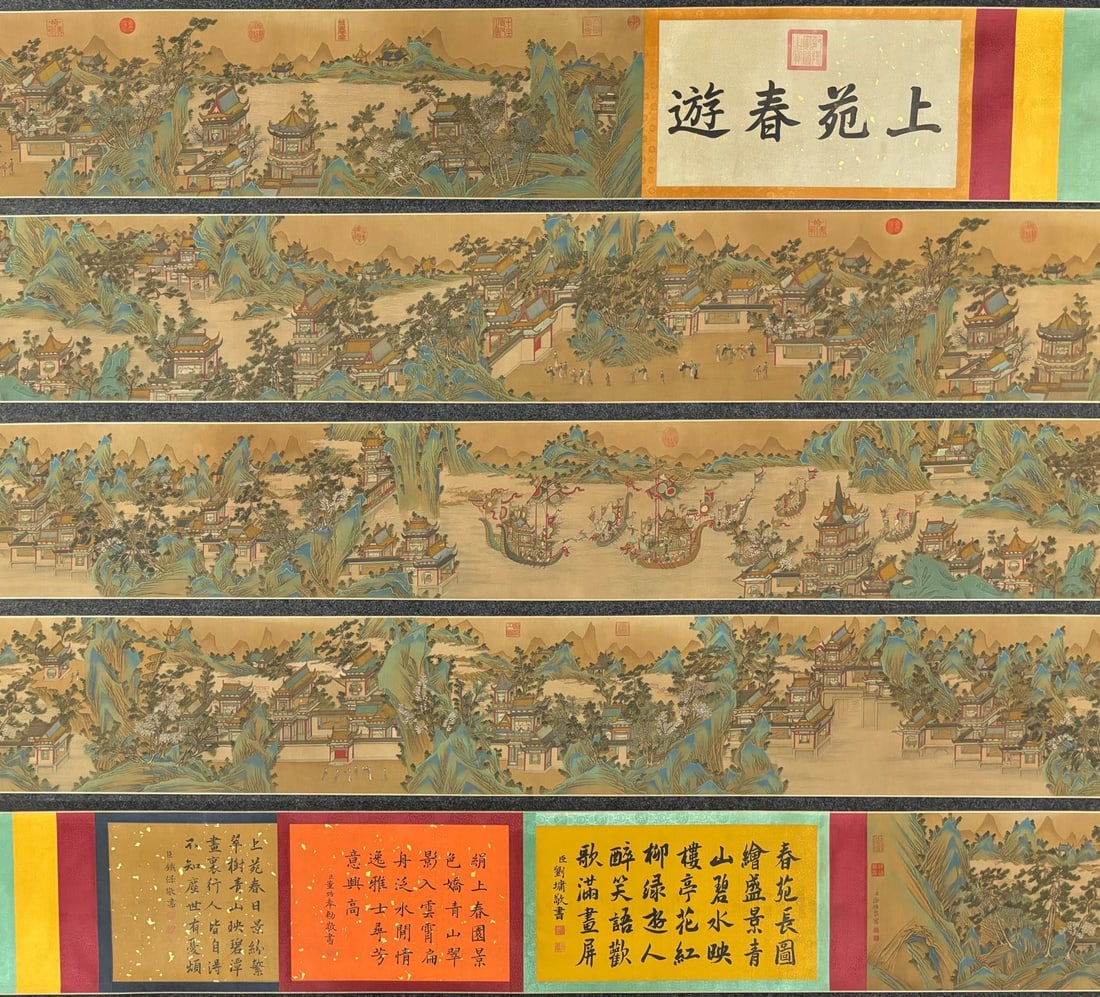 上苑春遊
春苑長圖
繪盛景青
山碧水映
樓亭花紅
柳绿遊人
醉笑語歡
歌滿畫屏
臣劉墉敬書
絹上春園景
色嬌青山翠
影入雲霄扁
舟泛水閒情
逸雅士尋芳
意興高
臣董誥奉勅敬書
上苑春日景紛繁
翠樹青山映碧潭
畫裏行人皆自得
不知塵世有憂煩
臣鐵保敬書